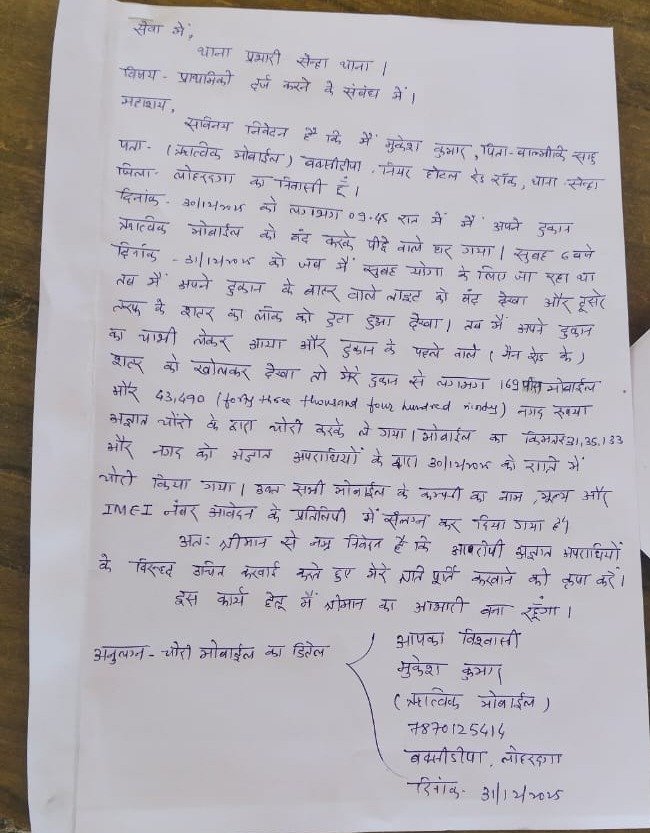 सेवा में,
थाना प्रभारी सेन्हा थाना।
विषय - प्राथमिकी दर्ज करने के संबंध में।
महाशय,
सविनय निवेदन है कि मैं मुकेश कुमार, पिता - वाल्मीकि साहु
पता - (ऋत्विक मोबाईल) बक्सीडीपा, नियर होटल रेड रॉक, थाना - सेन्हा
जिला - लोहरदगा का निवासी हूँ।
दिनांक - 30/12/2025 को लगभग 09.45 रात में मैं अपने दुकान
ऋत्विक मोबाईल को बंद करके पीछे वाले घर गया। सुबह 6 बजे
दिनांक - 31/12/2025 को जब मैं सुबह योगा के लिए जा रहा था
तब मैं अपने दुकान के बाहर वाले लाइट को बंद देखा और दूसरे
तरफ के शटर का लॉक को टुटा हुआ देखा। तब मैं अपने दुकान
का चाभी लेकर आया और दुकान के पहले वाले (मैन रोड के)
शटर को खोलकर देखा तो मेरे दुकान से लगभग 169 पीस मोबाईल
और 43,490 (forty three thousand four hundred ninty) नगद रुपया
अज्ञात चोरों के द्वारा चोरी करके ले गया। मोबाईल का किमत 31,35,133
और नगद को अज्ञात अपराधियों के द्वारा 30/12/2025 को रात्रि में
चोरी किया गया। उक्त सभी मोबाईल के कम्पनी का नाम, मूल्य और
IMEI नंबर आवेदन के प्रतिलिपी में संलग्न कर दिया गया है।
अतः श्रीमान से नम्र निवेदन है कि आरोपी अज्ञात अपराधियों
के विरुद्ध उचित करवाई करते हुए मेरे क्षति पूर्ति करवाने की कृपा करें।
इस कार्य हेतू मैं श्रीमान का आभारी बना रहूँगा।
अनुलग्न - चोरी मोबाईल का डिटेल
आपका विश्वासी
मुकेश कुमार
(ऋत्विक मोबाईल)
7870125414
बक्सीडीपा, लोहरदगा
दिनांक - 31/12/2025